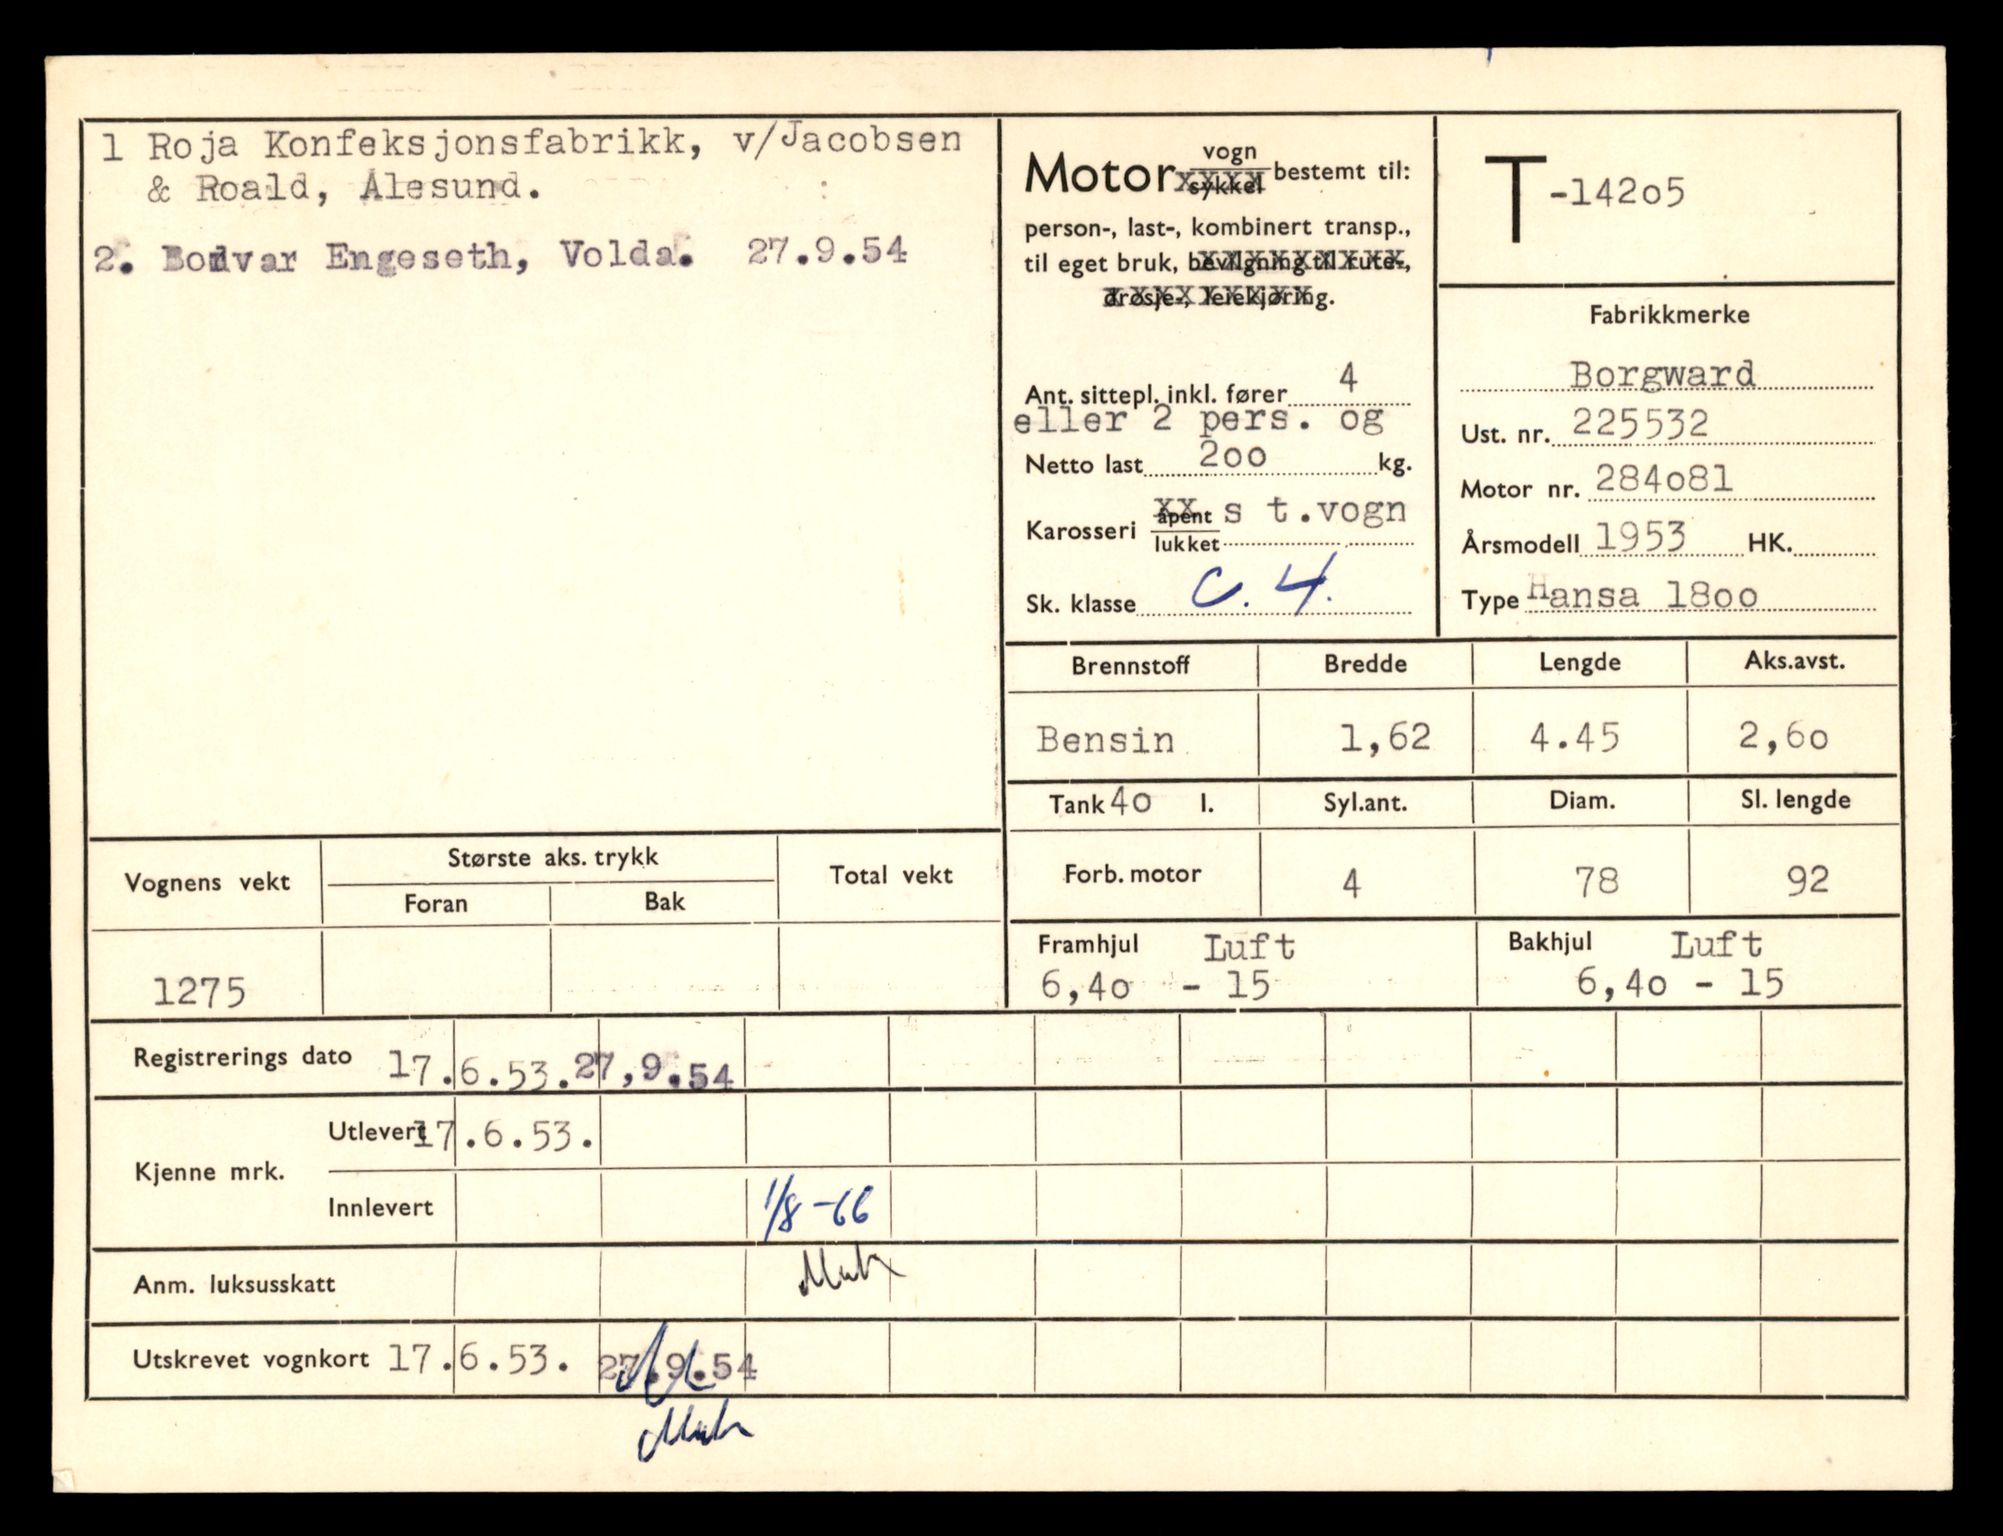 1 Roja Konfeksjonsfabrikk, v/Jacobsen
& Roald, Ålesund.
2. Bodvar Engeseth, Volda. 27.9.54
Motor vogn
sykkel bestemt til:
person-, last-, kombinert transp.,
til eget bruk, bevilgning til rute-,
drosje-, leiekjøring.
Ant. sittepl. inkl. fører 4
eller 2 pers. og
Netto last 200 kg.
Karosseri åpent
lukket s t.vogn
Sk. klasse C. 4.
T-14205
Fabrikkmerke
Borgward
Ust. nr. 225532
Motor nr. 284081
Årsmodell 1953 HK.
Type Hansa 1800
Brennstoff Bredde Lengde Aks.avst.
Bensin 1,62 4.45 2,60
Tank 40 l. Syl.ant. Diam. Sl. lengde
Forb. motor 4 78 92
Framhjul Luft Bakhjul Luft
6,40 - 15 6,40 - 15
Vognens vekt Største aks. trykk Total vekt
Foran Bak
1275
Registrerings dato 17.6.53. 27,9.54
Kjenne mrk.
Utlevert 17.6.53.
Innlevert 1/8-66
Anm. luksusskatt
Utskrevet vognkort 17.6.53. 27.9.54